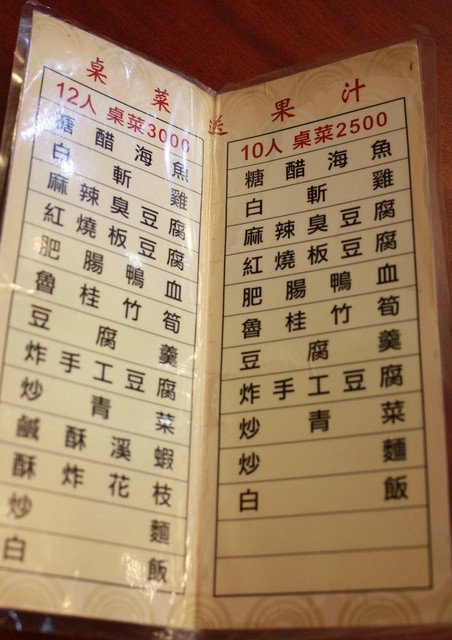 桌菜送果汁
12人 桌菜3000
糖醋海魚
白斬雞
麻辣臭豆腐
紅燒板豆腐
肥腸鴨血
魯桂竹筍
豆腐羹
炸手工豆腐
炒青菜
鹹酥溪蝦
酥炸花枝
炒麵
白飯
10人 桌菜2500
糖醋海魚
白斬雞
麻辣臭豆腐
紅燒板豆腐
肥腸鴨血
魯桂竹筍
豆腐羹
炸手工豆腐
炒青菜
炒麵
白飯